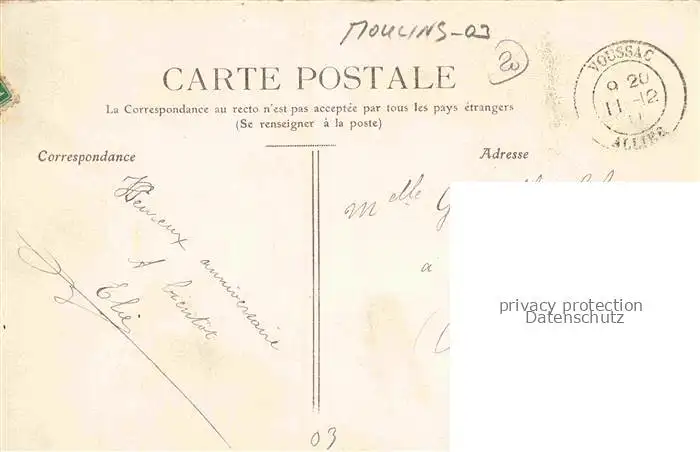 MOULINS-03
20
CARTE POSTALE
La Correspondance au recto n'est pas acceptée par tous les pays étrangers
(Se renseigner à la poste)
VOUSSAC
9 20
11-12
11
ALLIER
Correspondance
Adresse
Heureux anniversaire
A bientôt
Elie
Melle G
a
privacy protection
Datenschutz
03